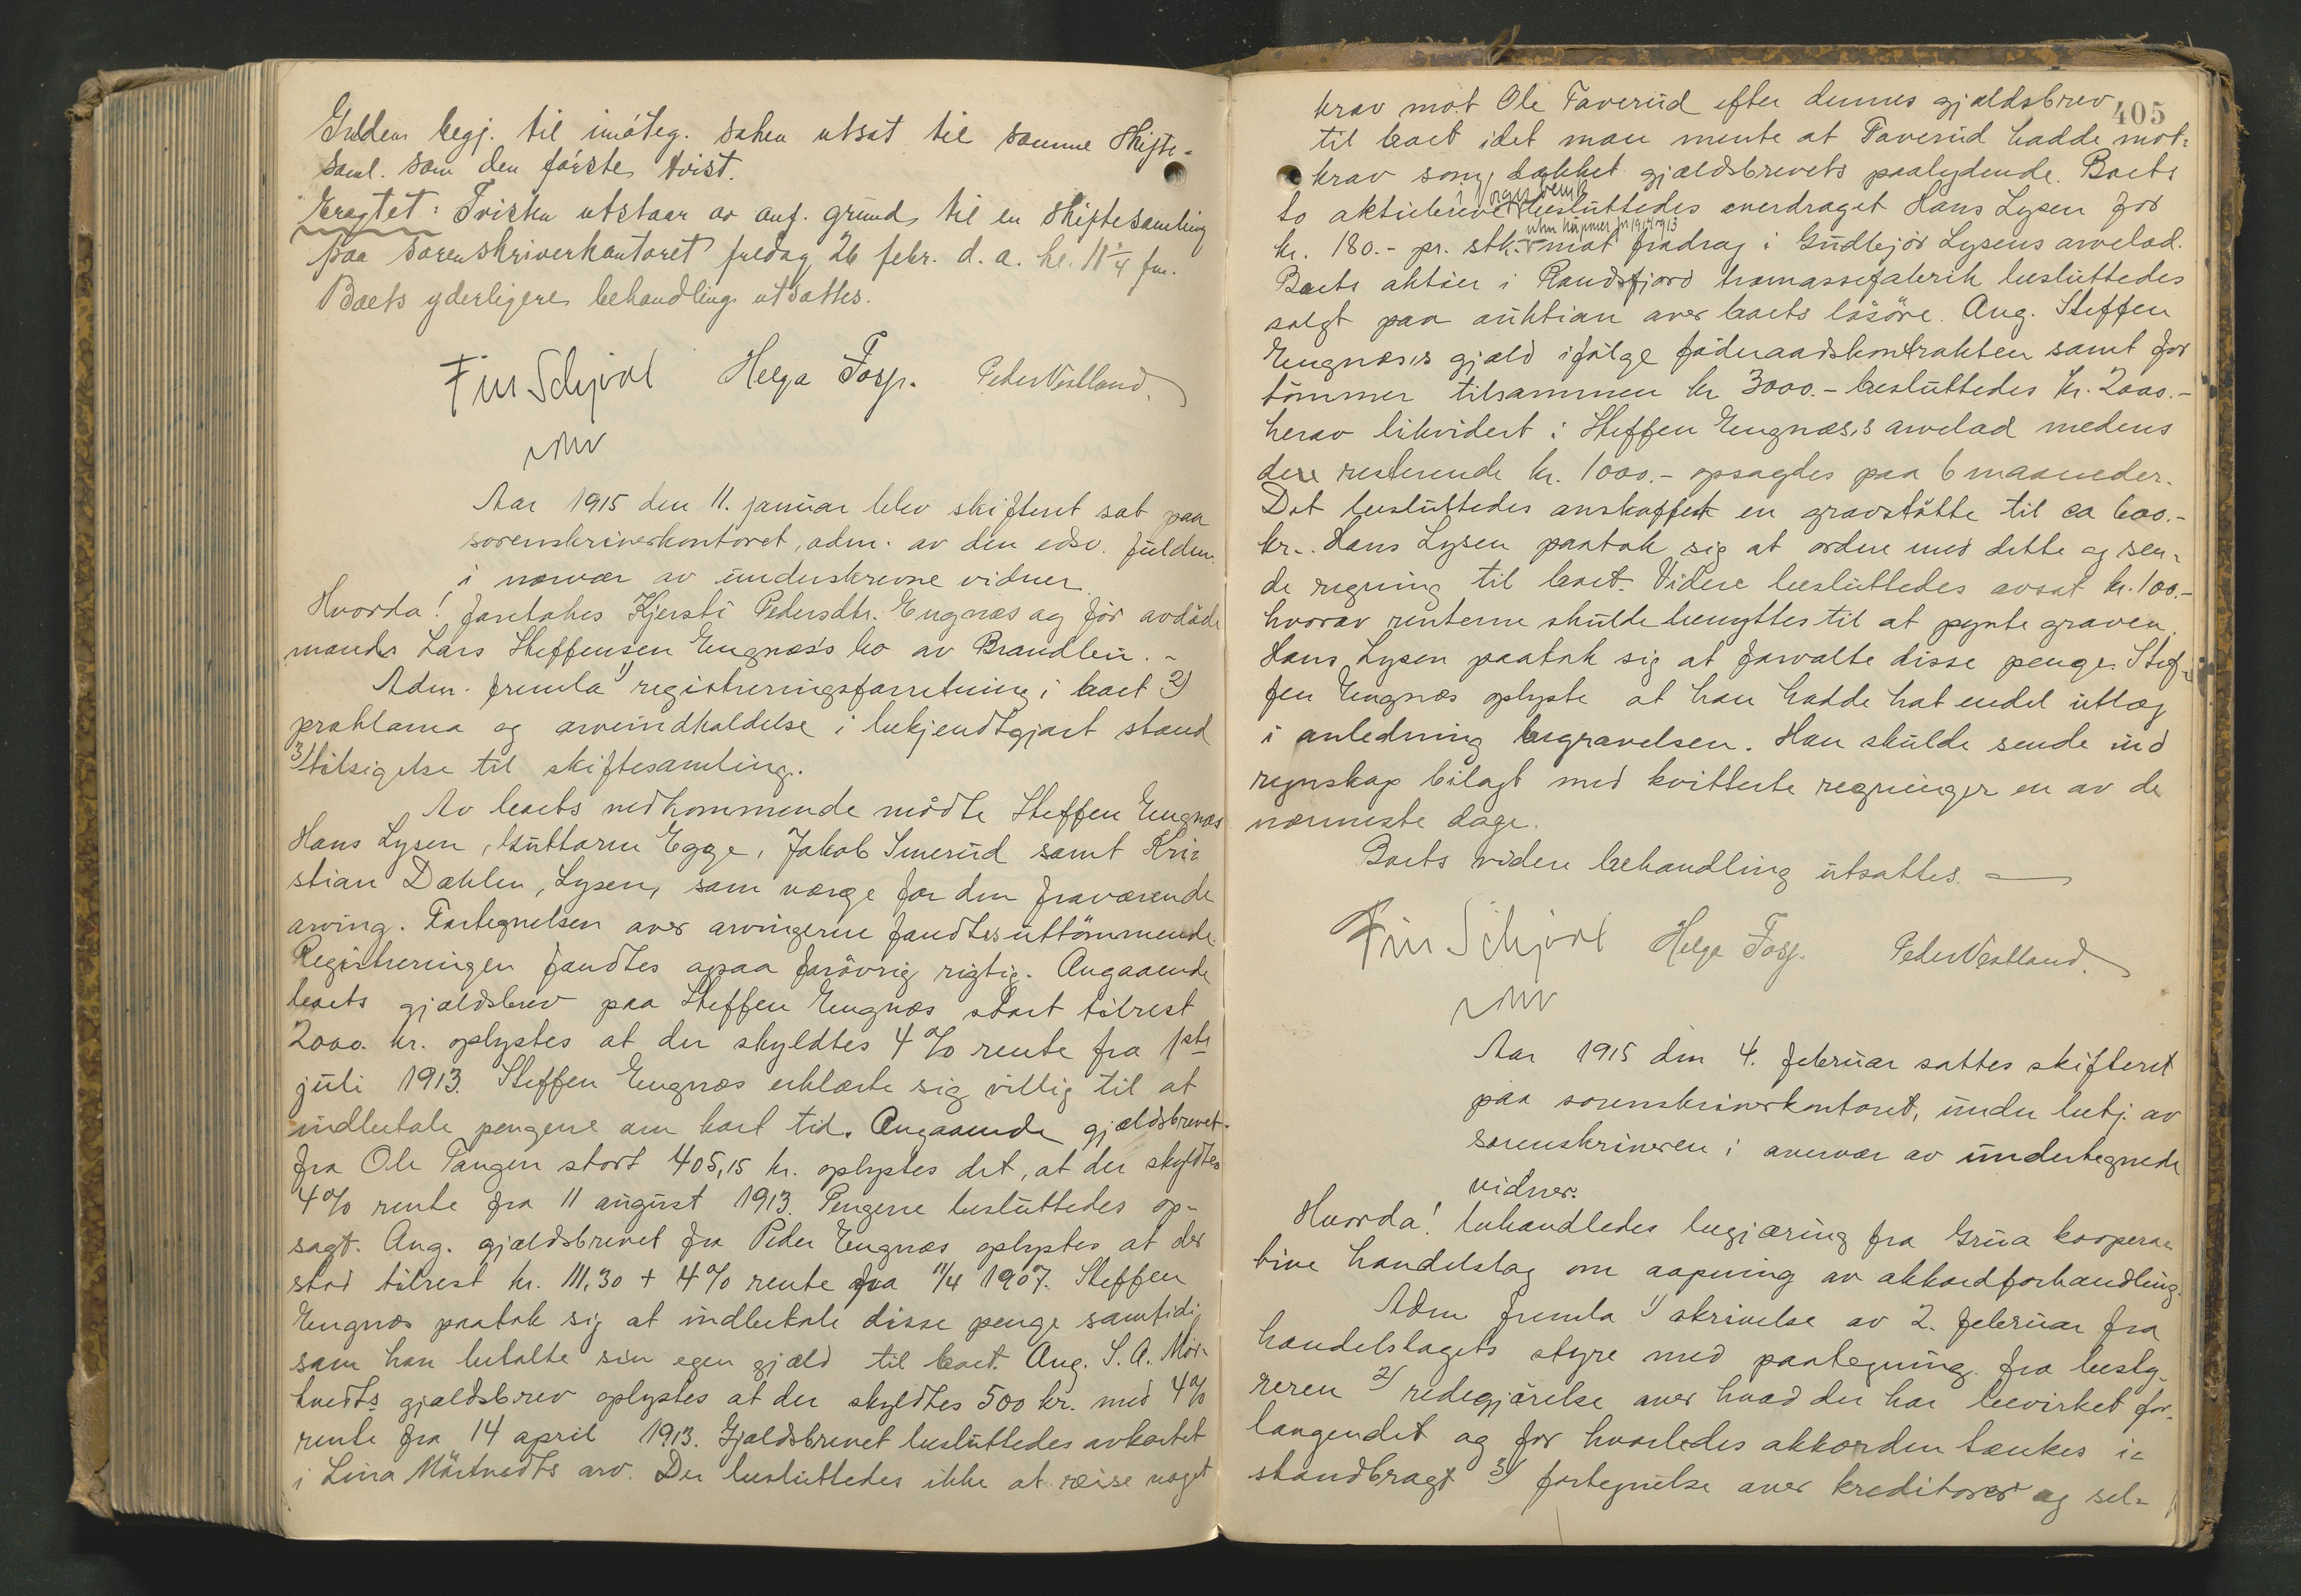 Guldens begj. til imøteg. saken utsat til samme Skifte-
saml. som den første tvist.
Eragtet: Tvisten utstaar av anf. grund til en skiftesamling
paa sorenskriverkontoret fredag 26 febr. d. a. kl. 11 1/4 fm.
Boets yderligere behandling utsattes.
Finn Schjøtt Helga Foss. Peder Vestland.
Aar 1915 den 11. januar blev skifteret sat paa
sorenskriverkontoret, adm. av den edsv. fuldm.
i nærvær av underskrevne vidner.
Hvorda! foretokes Kjersti Pedersdtr. Engnæs og før avdøde
mands Lars Steffensen Engnæs's bo av Brandbu. -
Adm. fremla 1) registreringsforretning i boet 2)
proklama og arveindkaldelse i bekjendtgjort stand
3) tilsigelse til skiftesamling.
Av boets vedkommende mødte Steffen Engnæs
Hans Lysen, Guttorm Egge, Jakob Smerud samt Kri-
stian Dæhlen, Lysen, som værge for den fraværende
arving. Fortegnelsen over arvingerne fandtes uttømmende.
Registreringen fandtes ogsaa forøvrig rigtig. Angaaende
boets gjældsbrev paa Steffen Engnæs stort tilrest
2000. kr. oplystes at der skyldtes 4 % rente fra 1ste
juli 1913. Steffen Engnæs erklærte sig villig til at
indbetale pengene om kort tid. Angaaende gjældsbrevet
fra Ole Tangen stort 405,15 kr. oplystes det, at der skyldtes
4 % rente fra 11 august 1913. Pengene besluttedes op-
sagt. Ang. gjældsbrevet fra Peder Engnæs oplystes at der
stod tilrest kr. 111,30 + 4 % rente fra 11/4 1907. Steffen
Engnæs paatok sig at indbetale disse penge samtidig
som han betalte sin egen gjæld til boet. Ang. S. A. Mör-
tvedts gjældsbrev oplystes at der skyldtes 500 kr. med 4 %
rente fra 14 april 1913. Gjældsbrevet besluttedes avkortet
i Lina Mörtvedts arv. Der besluttedes ikke at reise noget
405
krav mot Ole Taverud efter dennes gjældsbrev
til boet idet man mente at Taverud hadde mot-
krav som dækket gjældsbrevets paalydende. Boets
to aktiebrever besluttedes overdraget Hans Lysen for
kr. 180.- pr. stk. mot fradrag i Gudbjør Lysens arvelod.
Boets aktier i Randsfjord træmassefabrik besluttedes
solgt paa auktion over boets løsøre. Ang. Steffen
Engnæs's gjæld ifølge føderaadskontrakten samt for
tømmer tilsammen kr 3000.- besluttedes kr. 2000.-
herav likvidert i Steffen Engnæs's arvelod medens
de resterende kr. 1000.- opsagdes paa 6 maaneder.
Det besluttedes anskaffet en gravstøtte til ca 600.-
kr. Hans Lysen paatok sig at ordne med dette og sen-
de regning til boet. Videre besluttedes avsat kr. 100.-
hvorav renterne skulde benyttes til at pynte graven.
Hans Lysen paatok sig at forvalte disse penge. Stef-
fen Engnæs oplyste at han hadde hat endel utlæg
i anledning begravelsen. Han skulde sende ind
regnskap bilagt med kvitterte regninger en av de
nærmeste dage.
Boets videre behandling utsattes.
Finn Schjøtt Helga Foss. Peder Vestland.
Aar 1915 den 4. februar sattes skifteret
paa sorenskriverkontoret, under betj. av
sorenskriveren i overvær av undertegnede
vidner.
Hvorda! behandledes begjæring fra Grua koopera-
tive handelslag om aapning av akkordforhandling.
Adm fremla 1) skrivelse av 2. februar fra
handelslagets styre med paategning fra besty-
reren 2) redegjørelse over hvad der har bevirket for-
langendet og for hvorledes akkorden tænkes i-
standbragt 3) fortegnelse over kreditorer og sel-